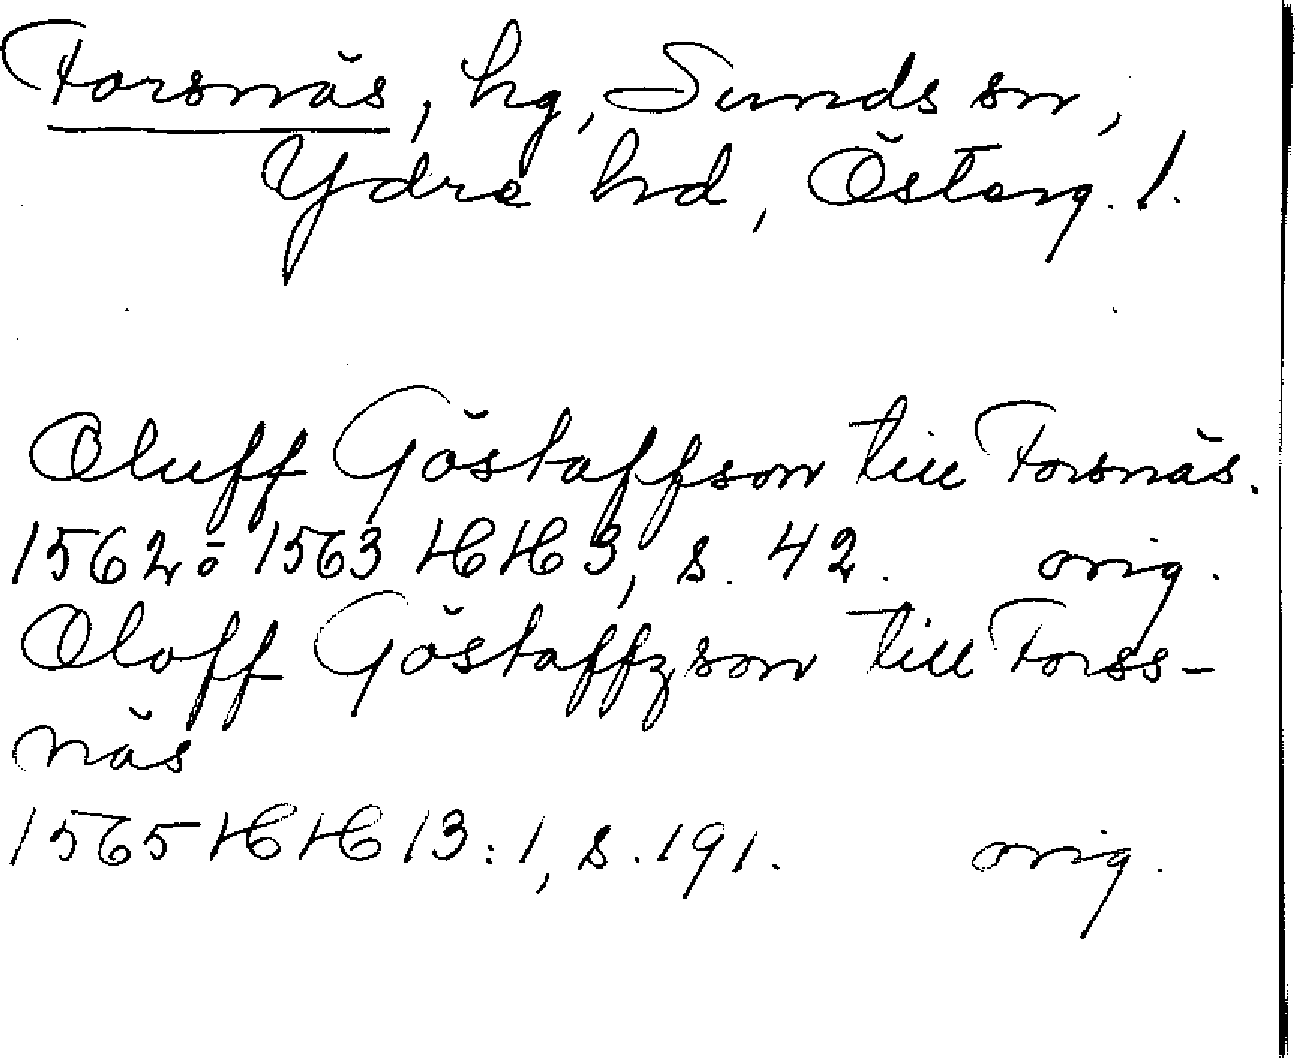 Forsnäs, hg, Sunds sn,
Ydre hd, Österg. l.
Oluff Göstaffson till Forsnäs.
1562 o 1563 HH 3, s. 42. orig.
Oloff Göstaffzson till Forss-
näs
1565 HH 13:1, s. 191. orig.